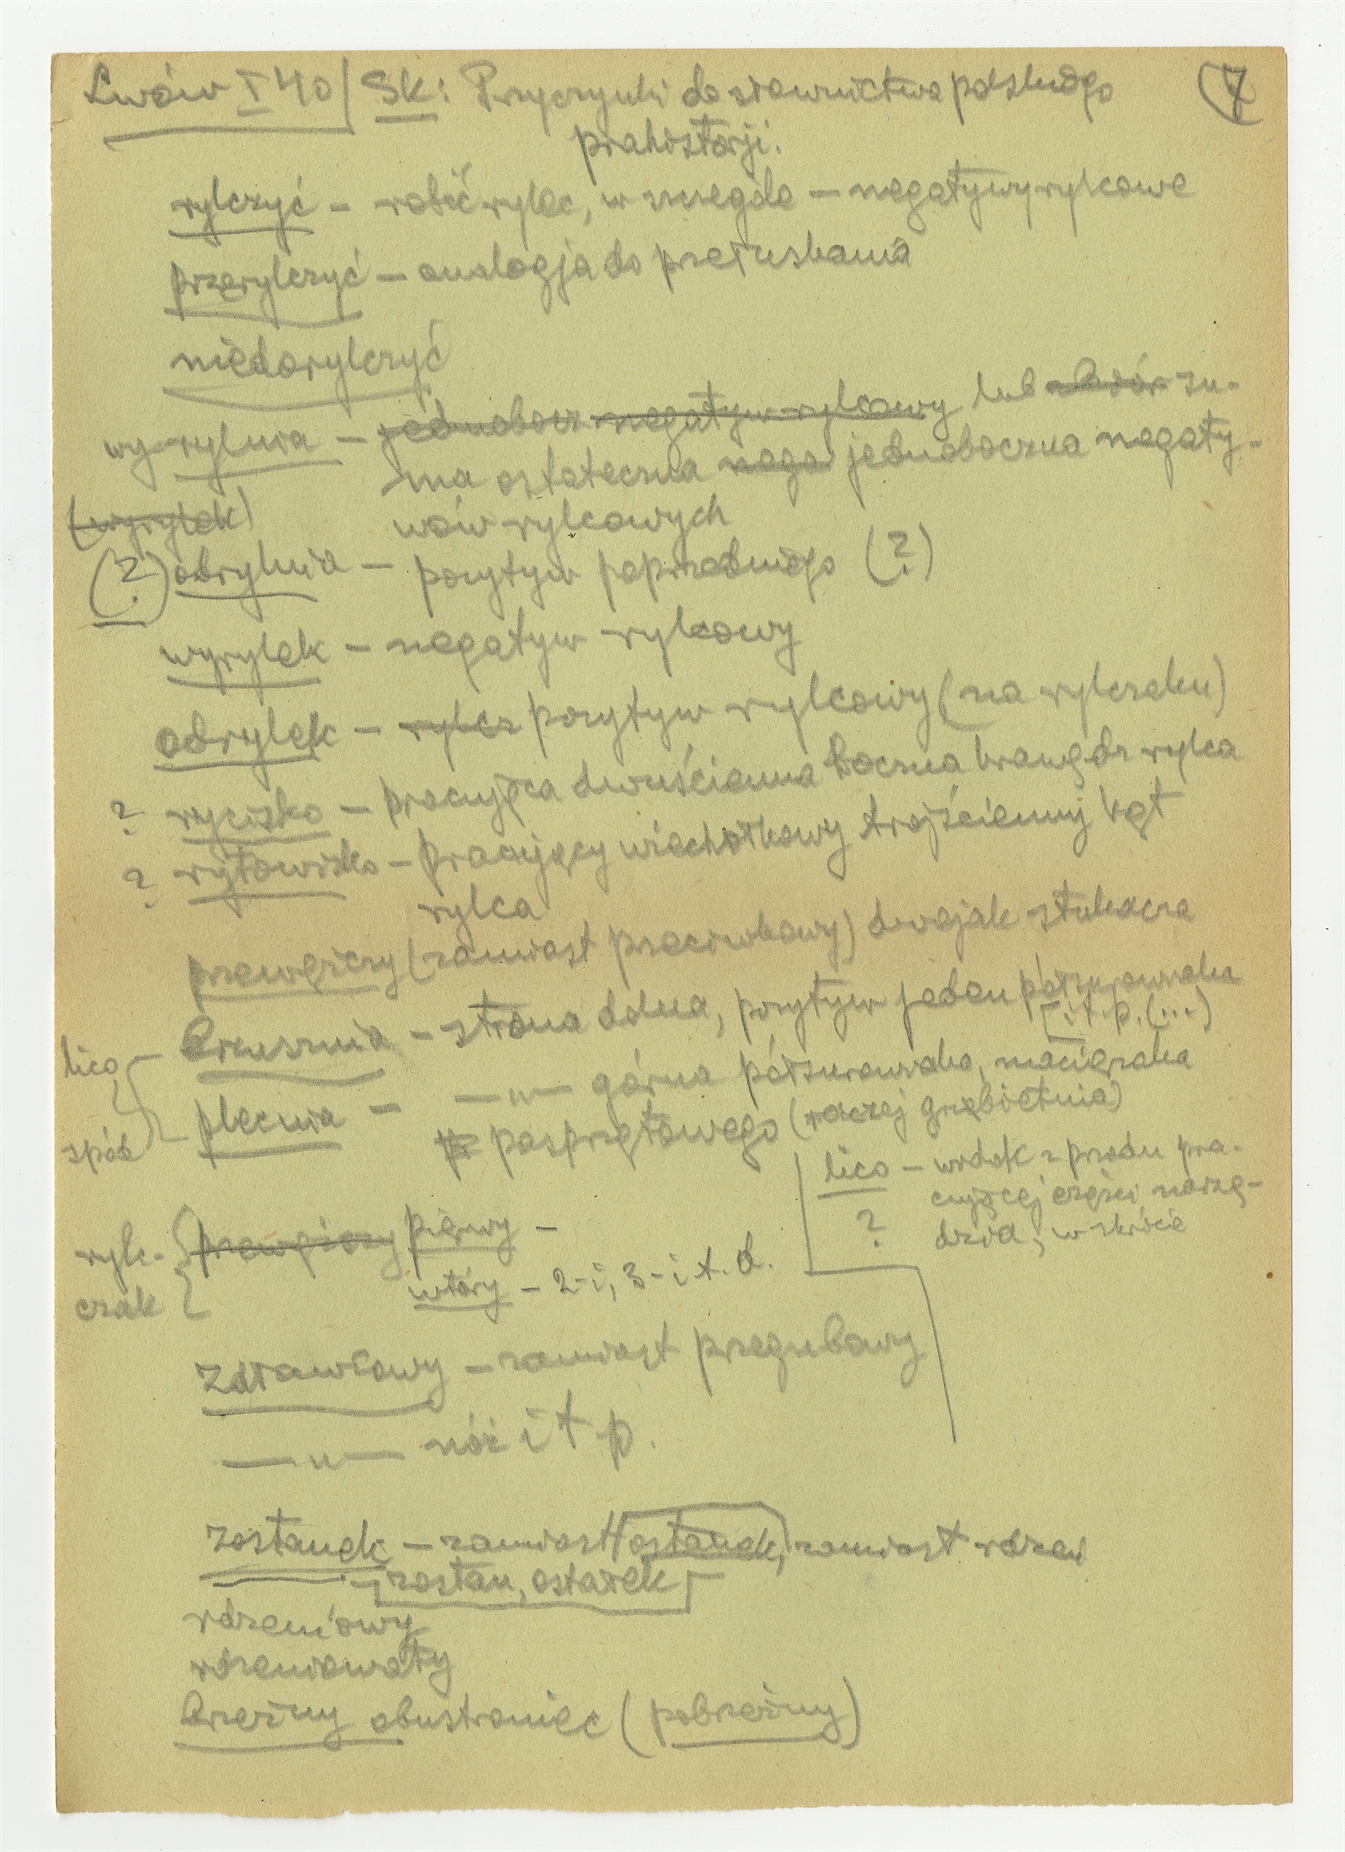 Lwów I 40 / Sk: Przyczynki do słownictwa polskiego 7
prahistorji:
rylczyć – robić rylec, w szczególe – negatywy rylcowe
przerylczyć – analogja do przełuskania
niedorylczyć
wy-rylnia – jednobocz negatyw rylcowy lub zbiór su-
ma ostateczna nega jednoboczna negaty-
(wyrylek) wów rylcowych
(?) obrylnia – pozytyw poprzedniego (?)
wyrylek – negatyw rylcowy
odrylek – rylcz pozytyw rylcowy (na rylczaku)
? rycisko – pracująca dwuścienna boczna krawędź rylca
? rytowisko – pracujący wierzchołkowy trójścienny kąt
rylca
przewęzczy (zamiast przeciwbawy) dwojak stukacza
lico brzusznia – strona dolna, pozytyw jeden półsurowiaka
i t. p. (...)
spód plecnia – —"— górna półsurowiaka, macięzaka
pr posprzętowego (raczej grzbietnia)
lico – widok z przodu pra-
cującej części narzę-
? dzia; w skrócie
ryl- przewęższy pierwy –
czak wtóry – 2-i, 3-i i t. d.
zdrawcowy – zamiast przegubawy
—"— nóż i t p.
zostanek – zamiast ostanek, zamiast rdzeń
zostan, ostatek
rdzeniowy
rdzeniowaty
brzeżny obustroniec (pobrzeżny)